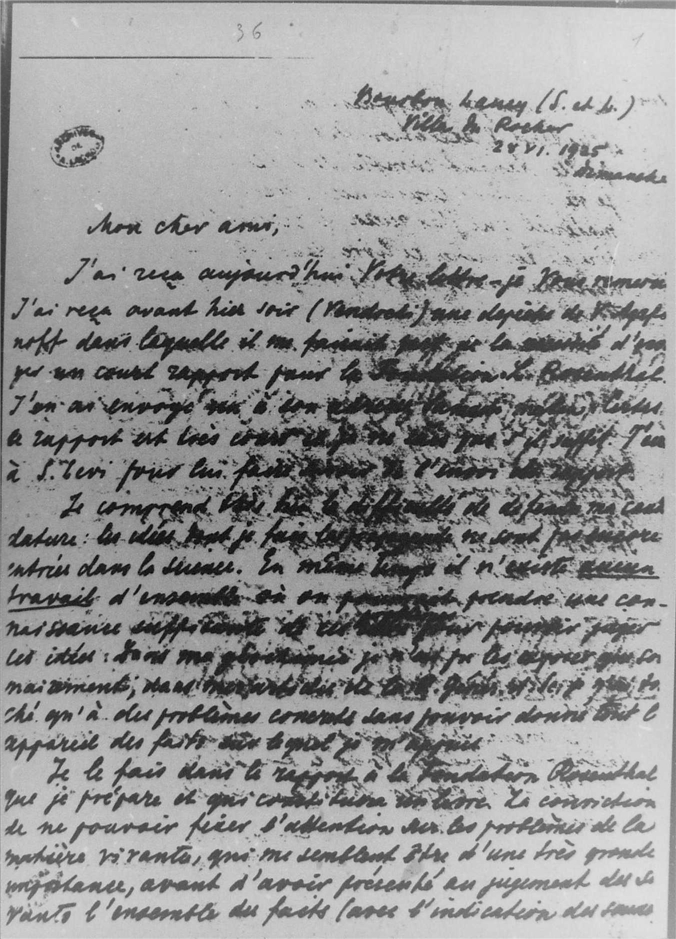 36
1
Bourbon Lancy (S. et L.)
Villa du Rocher
28 VI. 1925
dimanche
ARCHIVES DE A. LACROIX
Mon cher ami,
J'ai reçu aujourd'hui Votre lettre – je Vous remercie
J'ai reçu avant hier soir (Vendredi) une depèche de
noff dans laquelle il me faisait part de la necessité d'envo
yer un court rapport pour la Fondation Rosenthal.
J'en ai envoyé un à son
ce rapport est très court et je ne sais pas s'il suffit. J'écris
à S. Levi pour lui faire de l'envoi rapport
Je comprend très bien la difficulté de defendre ma candi
dature: les idées dont je fais la propagande ne sont pas encore
entrées dans la science. En même temps il n'existe aucun
travail d'ensemble où on pourrait prendre une con-
naissance suffisante de ces pour pouvoir juger
ces idées: dans ma géochimie je n'ai pu les exposer que som
mairement; dans mes articles de la R. Génér. d. Sc. je n'ai tou
ché qu'à des problèmes concrets sans pouvoir donner tout l'
appareil des faits sur lequel je m'appuie.
Je le fais dans le rapport à la Fondation Rosenthal
que je prépare et qui constituera un livre. La conviction
de ne pouvoir fixer l'attention sur les problèmes de la
matière vivante, qui me semblent être d'une très grande
importance, avant d'avoir présenté au jugement des sa
vants l'ensemble des faits (avec l'indication des sources